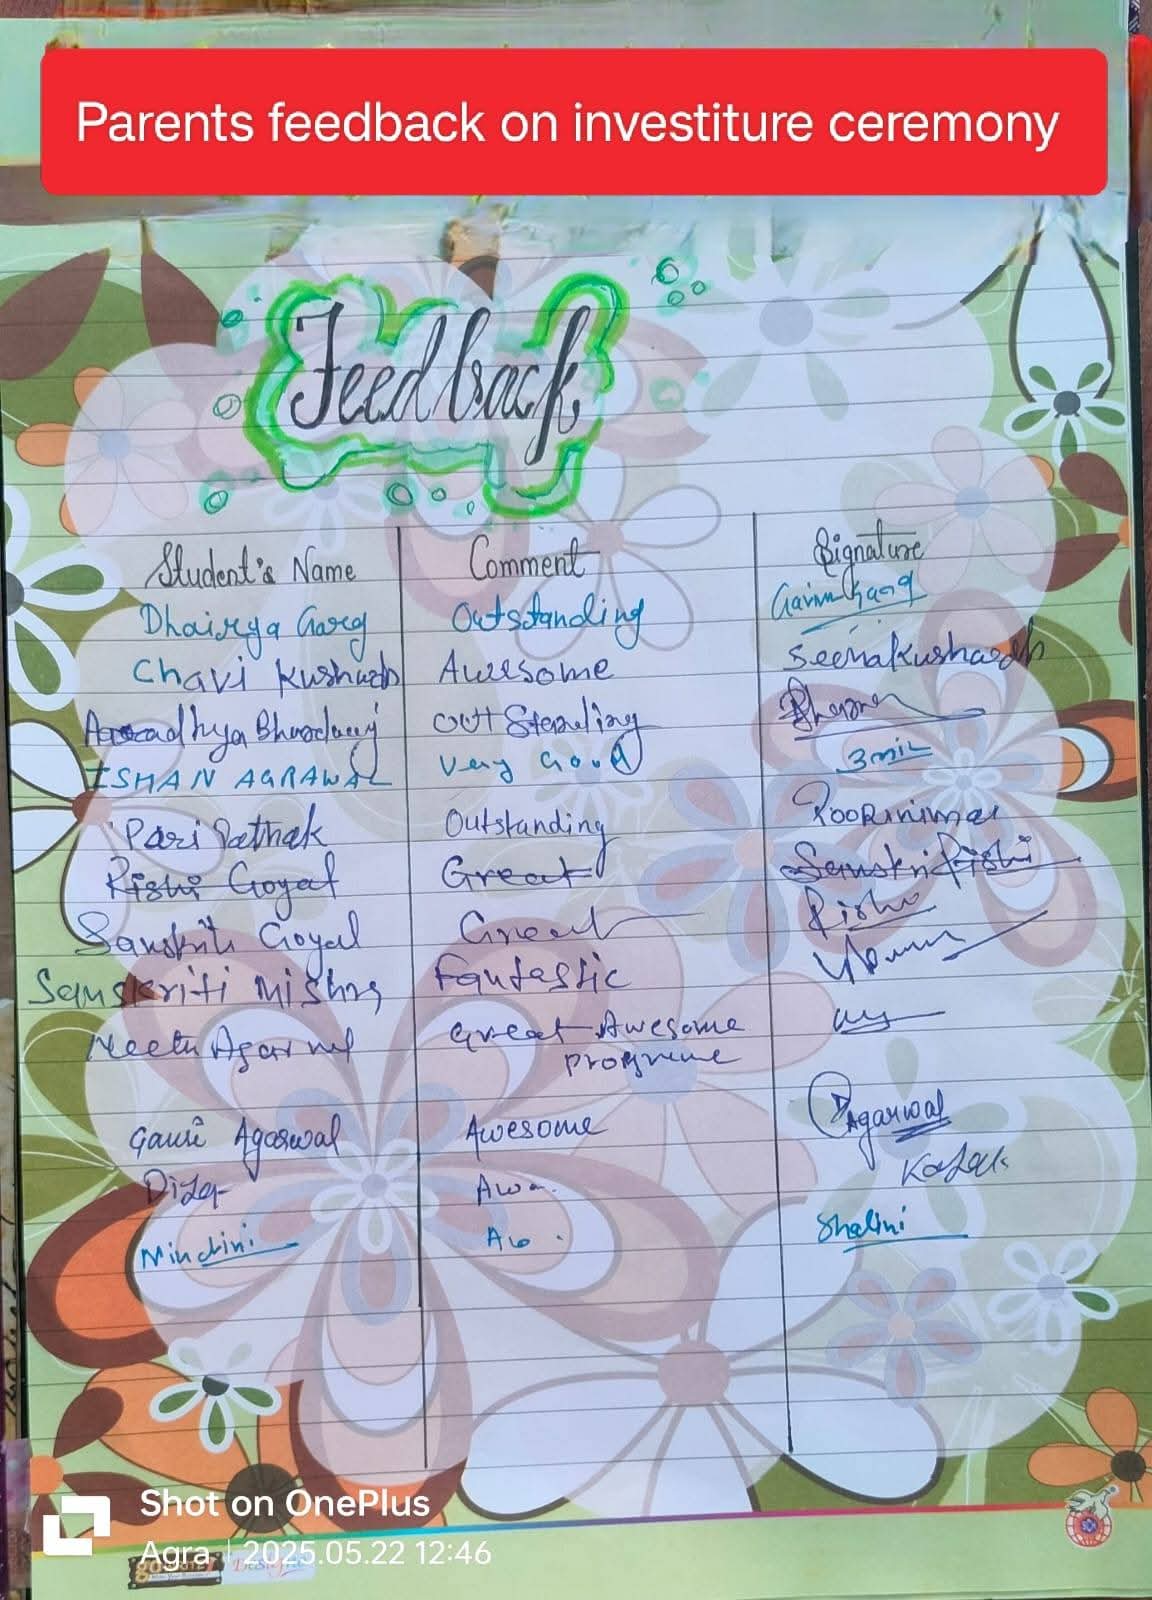 Parents feedback on investiture ceremony
Feedback
Student's Name Comment Signature
Dhairya Garg Outstanding Garg
Chavi Kushwah Awesome Seema Kushwah
Aradhya Bhardwaj Outt Standing
ISHAN AGRAWAL Very Good
Pari Pathak Outstanding Poornima
Rishi Goyal Great Sanskriti Rishi
Sanskriti Goyal Great Rishi
Samskriti Mishra Fantastic
Neetu Agarwal Great Awesome
programe
Gauri Agarwal Awesome Agarwal
Awa
Aw Shalini
Shot on OnePlus
Agra | 2025.05.22 12:46